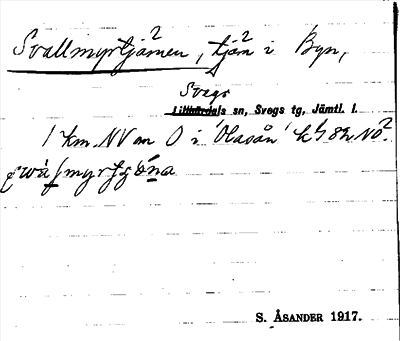 Svallmyrtjärnen, tjärn i Byn,
Svegs
Lillhärdals sn, Svegs tg, Jämtl. l.
1 km. NV om O i 'Olasån' k 582 NO.
S. ÅSANDER 1917.